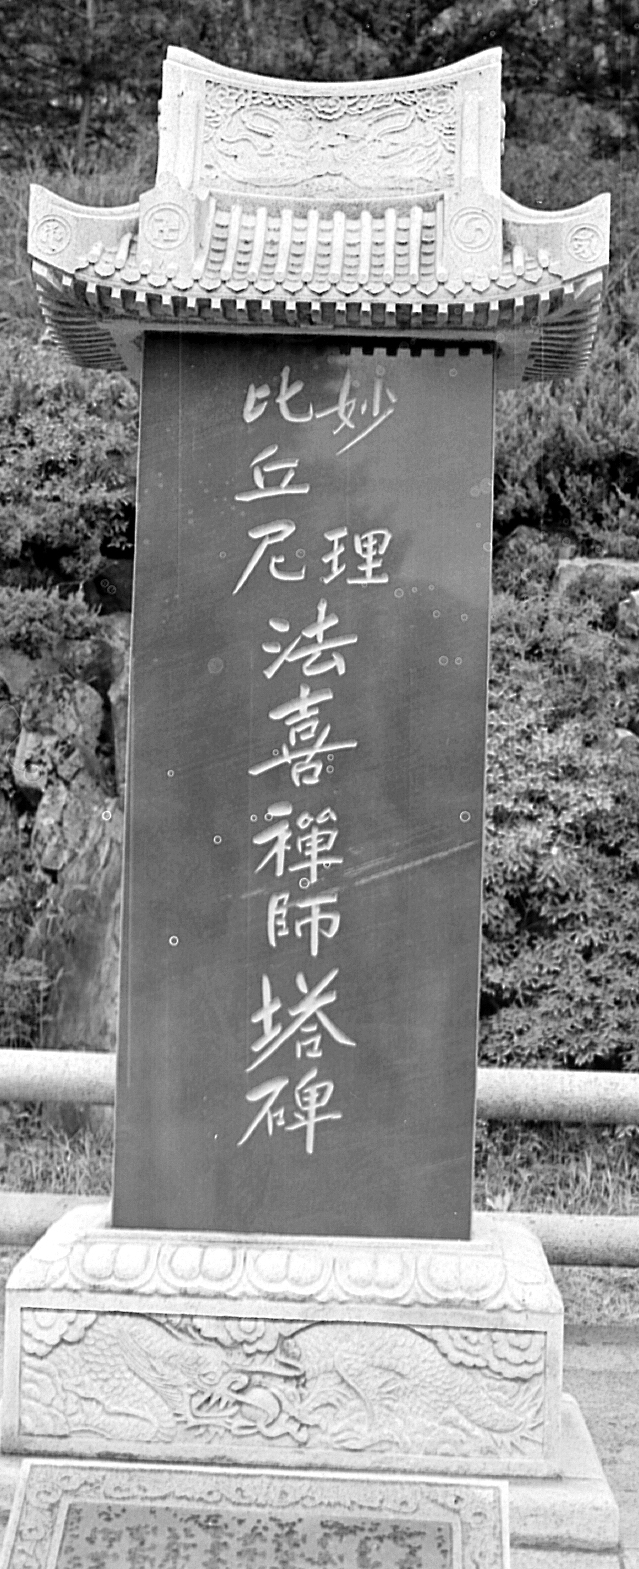 妙理
比丘尼
法喜禪師塔碑